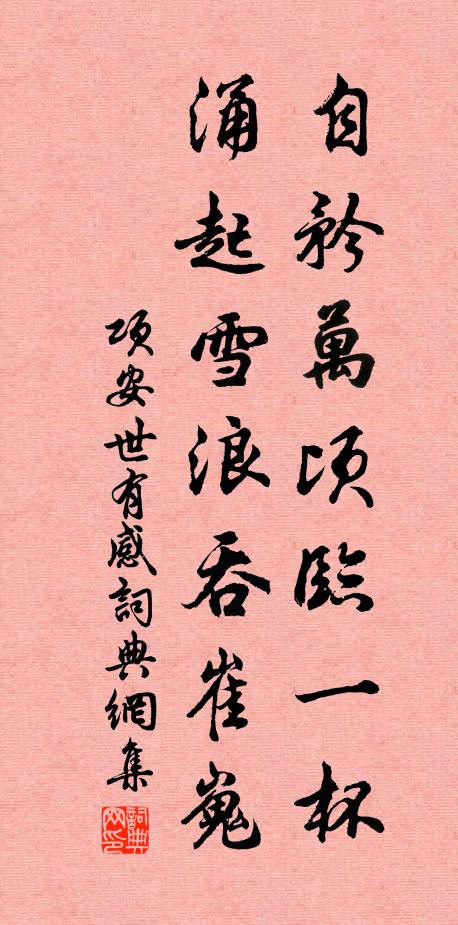 自矜萬頃臨一杯
涌起雪浪吞崔嵬
項安世有感詞典網集
詞典网印